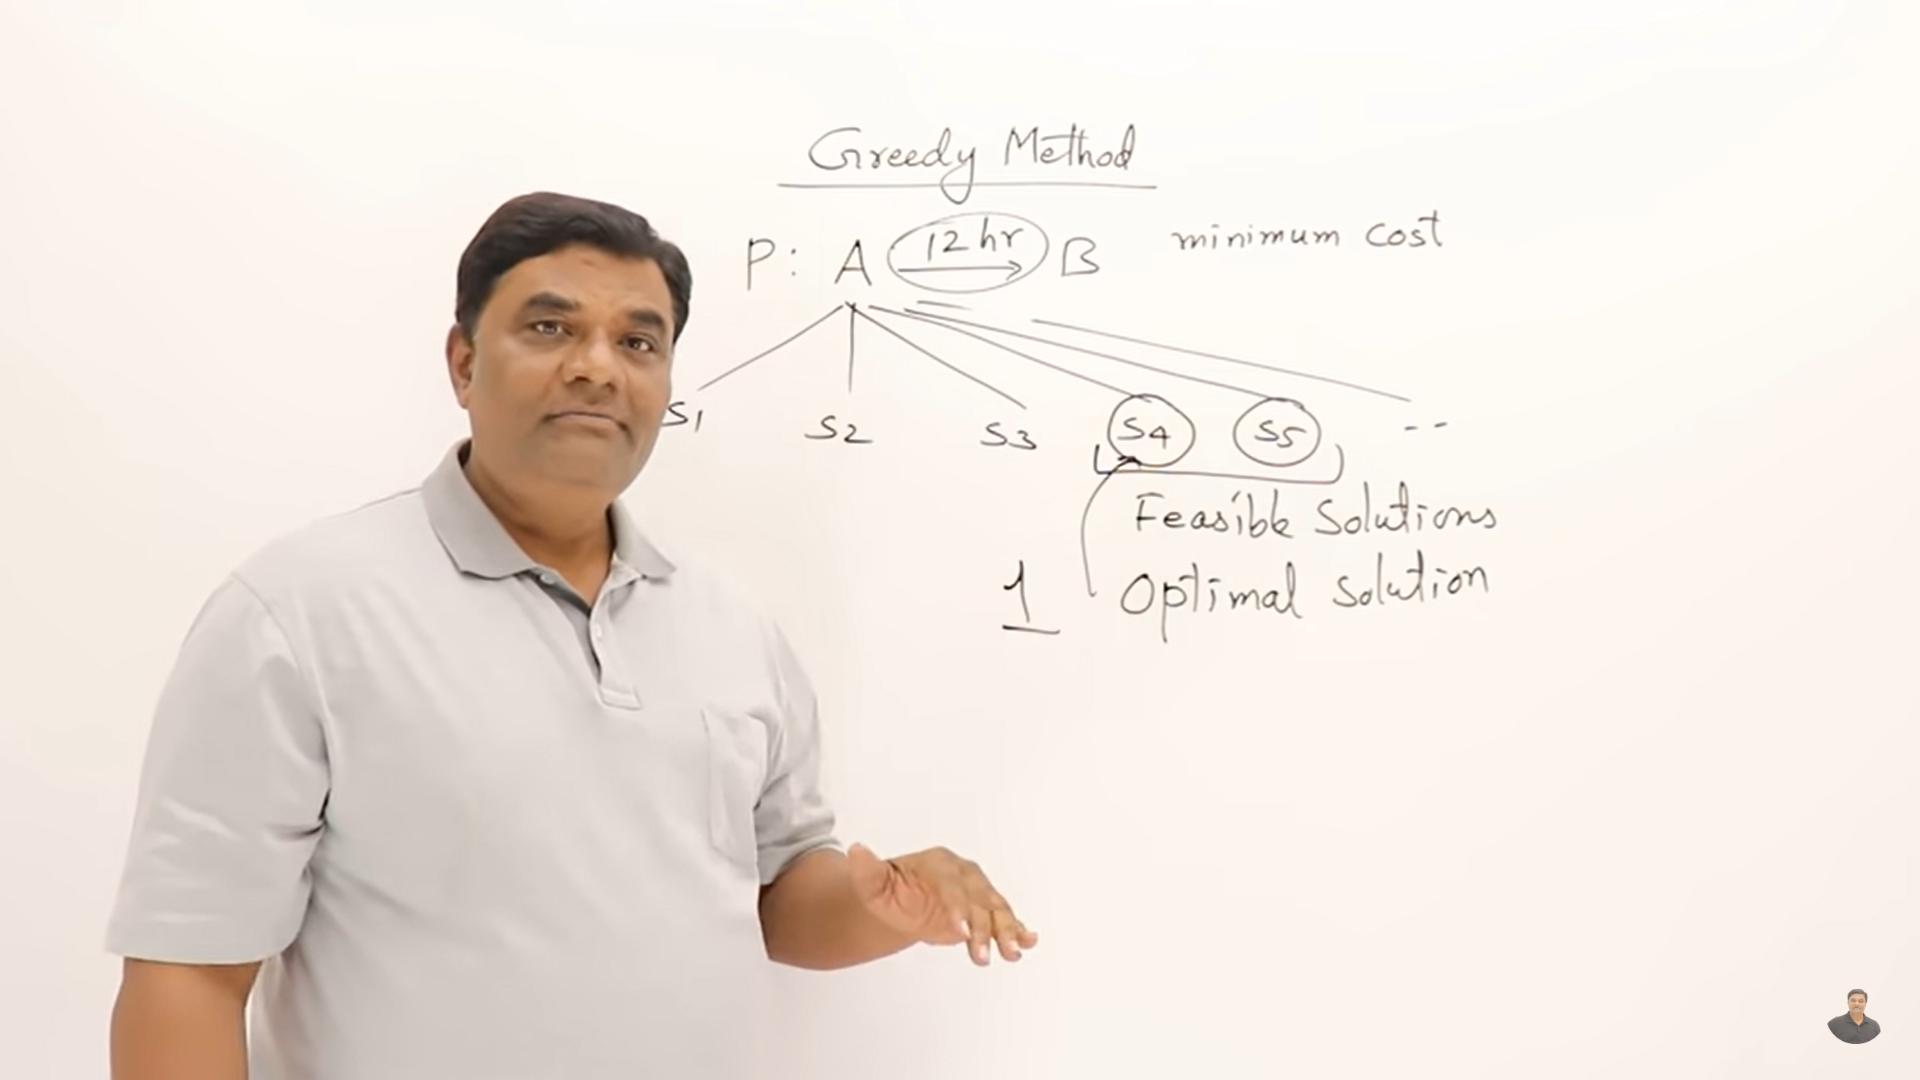 Greedy Method
P: A 12 hr B minimum cost
S1 S2 S3 S4 S5 --
Feasible Solutions
1 Optimal solution